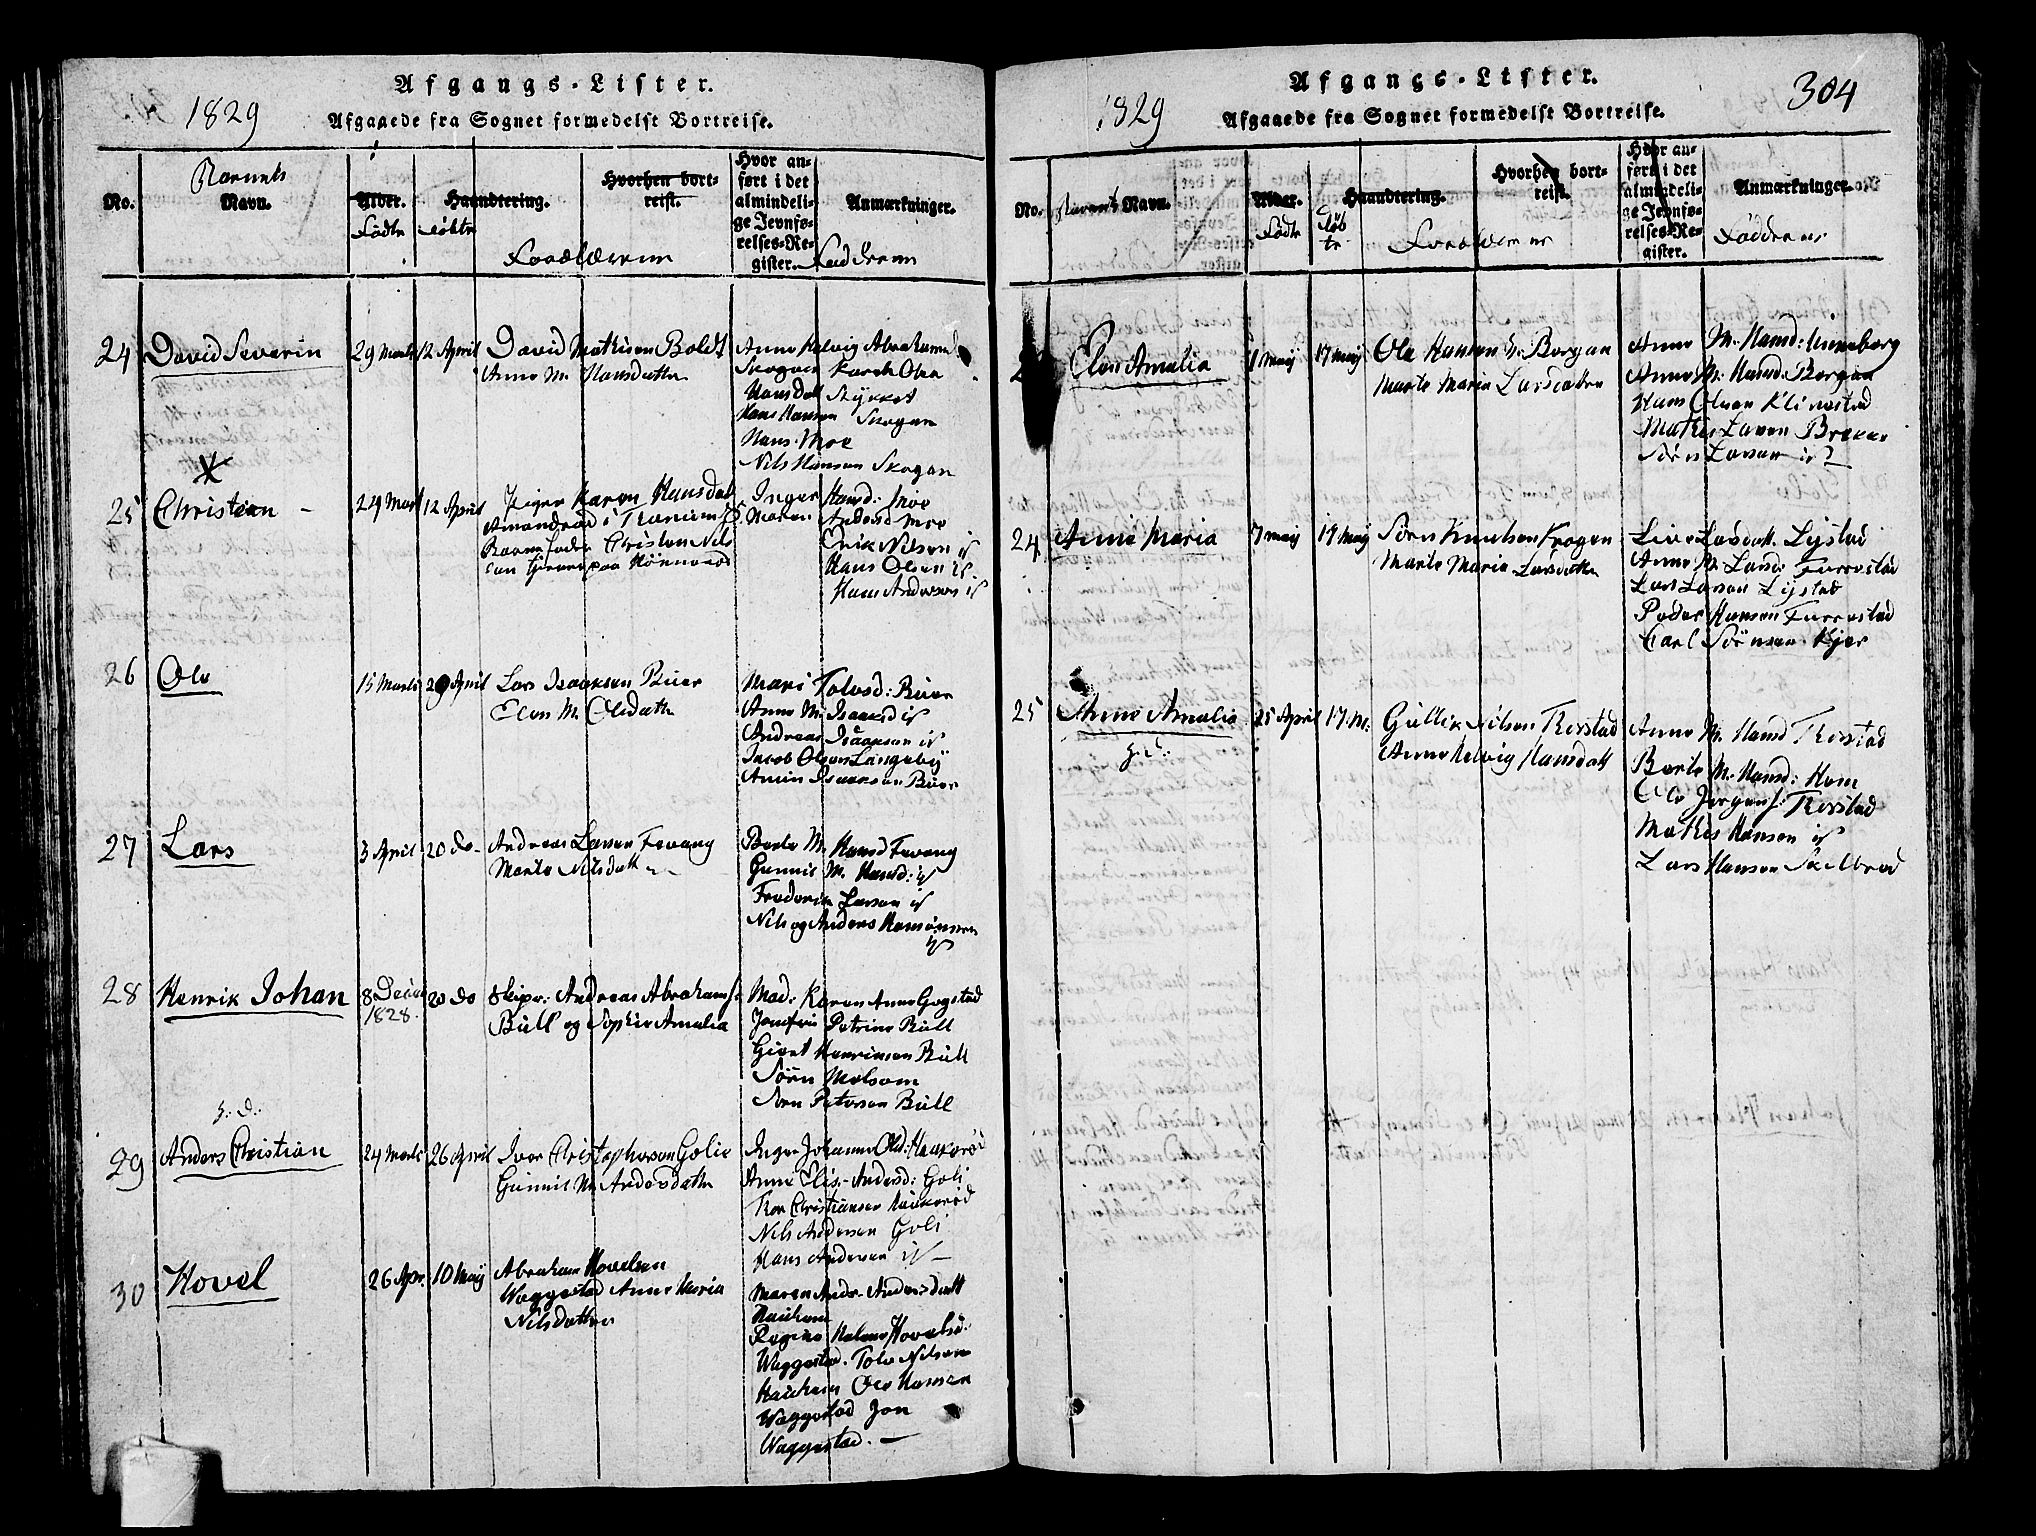 Afgangs-Lister.
1829
Afgaaede fra Sognet formedelst Bortreise.
No.
Barnets
Navn.
Alder.
Födte
Haandtering.
döbte
Forældrene
Hvorhen bort-
reist.
Hvor an-
ført i det
almindeli-
ge Jevnfø-
relses-Re-
gister.
Anmærkninger.
Faddrene
24 David Severin 29 Marts 12 April David Mathisen Boldt
Anne M. Hansdatter
Anne Helvig Abrahamsd
Skogen Karen Olea
Hansdatt Stykket
Hans Hansen Skogen
Hans Moe
Nils Hansen Skogan
25 Christian - 24 Mart 12 April Piger Karen Hansdat
Barnefader Christen Nils
sen tjener paa
Inger Hansd: Moe
Maren Andersd Moe
Erik Nilsen is
Hans Olsen is.
Hans Andersen is
26 Ole 15 Marts 20 April Lars Isaaksen Buer
Elen M. Olsdatter
Mari Tolvsd: Buer
Anne M. Isaaksd is
Andreas Isaaksen is
Jacob Olsen Langeby
Amun Isaaksen Buer
27 Lars 3 April 20 do- Andreas Larsen Fevang
Marte Nilsdatter
Berte M. Hansd Fevang
Gunnil M. Hansd: is
Frederik Larsen is
Nils og Anders Hansønner
is
28 Henrik Johan 8 Decin 20 do Skipr: Andreas Abrahams:
1828. Büll og Sophie Amalia
Mad: Karen Anne Gogstad
Jomfru Petrine Büll
Giert Henriksen Büll
Sörn Melsom
Sörn Petersen Büll
h: d:
29 Anders Christian 24 Marts 26 April Iver Christophersen Golie
Gunnil M. Andersdatter
Inger Johanne Olsd: Haukerød
Anne Elis. Andersd: Goli
Thor Christiansen Haukerød
Nils Andersen Goli
Hans Andersen is
30 Hovel 26 Apr. 10 Maij Abraham Hovelsen
Waggestad Anne Maria
Nilsdatter
Maren Andr. Andersdatt
Haukem
Regine Helene Hovelsd.
Waggestad. Tolv Nilsen
Haukem Ole Hansen
Waggestad Jon
Waggestad.
Afgangs-Lister.
304
1829
Afgaaede fra Sognet formedelst Bortreise.
No.
Barnets Navn.
Alder.
Födte
Döb
te
Haandtering.
Forældrene
Hvorhen bort-
reist.
Hvor an-
ført i det
almindeli-
ge Jevnfø-
relses-Re-
gister.
Anmærkninger.
Faddrene
Elen Amalia 1 maij 17 maij Ole Hansen Bergan
Marte Maria Larsdatter
Anne M. Hansd:
Anne M. Hansd: Bergan
Hans Olsen Klinestad
Mathis Larsen Brekke
Sörn Larsen is
24 Anne Maria 7 maij 17 maij Sörn Knudsen Krogen
Marte Maria Larsdatter
Live Larsdatt. Lystad
Anne M. Larsd: Furestad
Lars Larsen Lystad
Peder Hansen Furestad
Carl Sörensen Kjer
25 Anne Amalia 25 April 17 M. Gullik Nilsen Trostad
h: d:
Anne Helvig Hansdatt
Anne M. Hansd Trostad
Berte M. Hansd: Hem
Ole Jörgens: Trostad
Mathis Hansen is
Lars Hansen Skilbred